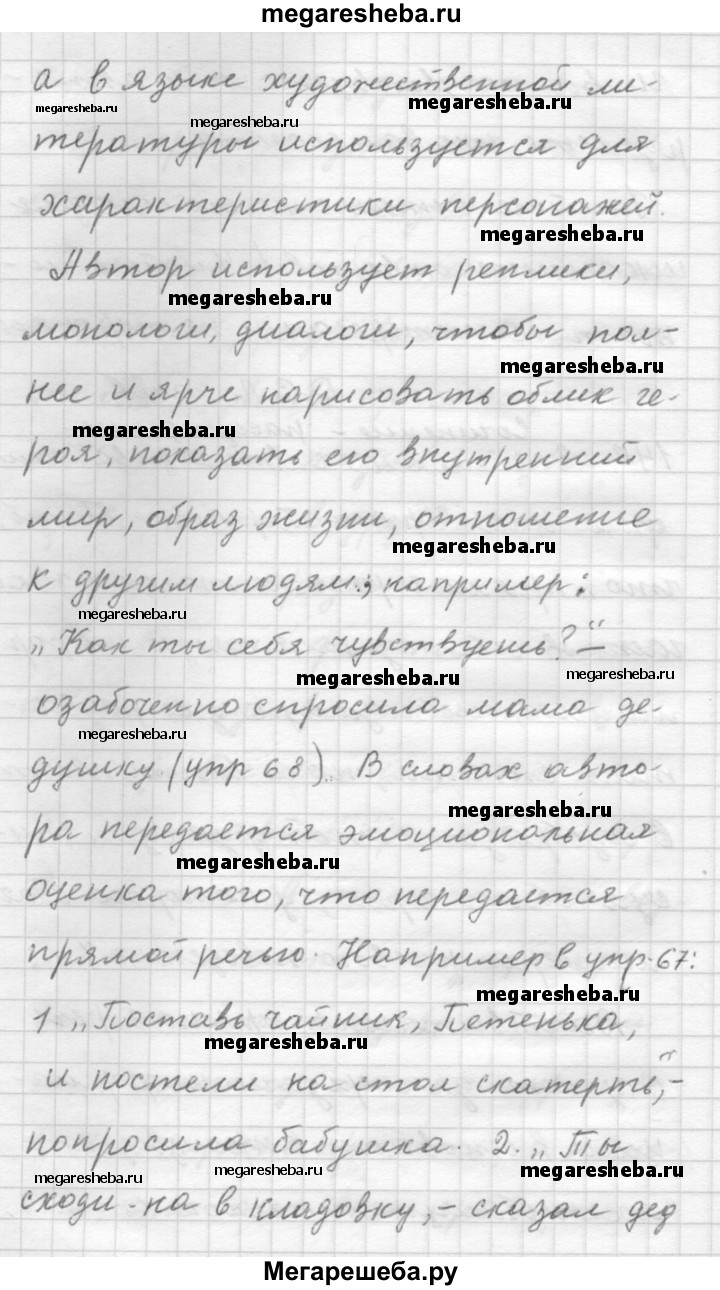 megaresheba.ru
а в языке художественной ли-
megaresheba.ru
megaresheba.ru
megaresheba.ru
тературы используется для
характеристики персонажей.
megaresheba.ru
Автор использует реплики,
megaresheba.ru
монологи, диалоги, чтобы пол-
megaresheba.ru
нее и ярче нарисовать облик ге-
megaresheba.ru
роя, показать его внутренний
мир, образ жизни, отношение
megaresheba.ru
к другим людям; например:
megaresheba.ru
„Как ты себя чувствуешь?“ –
megaresheba.ru
megaresheba.ru
озабоченно спросила мама де-
megaresheba.ru
душку (упр 68). В словах авто-
megaresheba.ru
ра передается эмоциональная
megaresheba.ru
оценка того, что передается
прямой речью. Например в упр. 67:
megaresheba.ru
1 „Поставь чайник, Петенька,
megaresheba.ru
и постели на стол скатерть“, –
попросила бабушка. 2. „Ты
megaresheba.ru
megaresheba.ru
megaresheba.ru
сходи-ка в кладовку, – сказал дед
Мегарешеба.ру